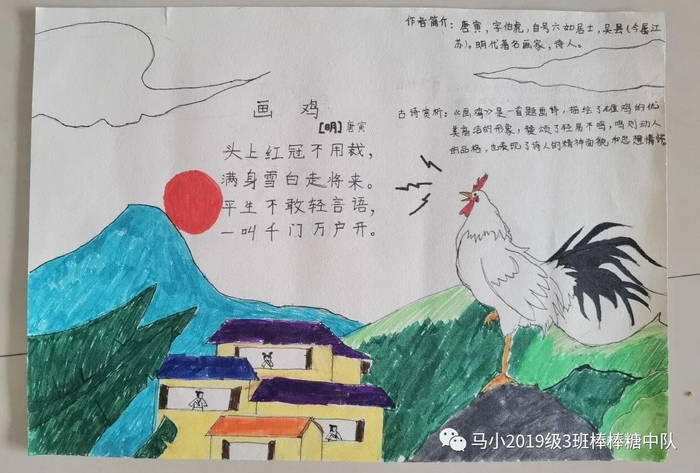 作者简介：唐寅，字伯虎，自号六如居士，吴县(今属江
苏)。明代著名画家，诗人。
画 鸡
[明]唐寅
头上红冠不用裁，
满身雪白走将来。
平生不敢轻言语，
一叫千门万户开。
古诗赏析：《画鸡》是一首题画诗，描绘了雄鸡的优
美高洁的形象，赞颂了轻易不鸣，鸣则动人
的品格，也表现了诗人的精神面貌和思想情怀
马小2019级3班棒棒糖中队